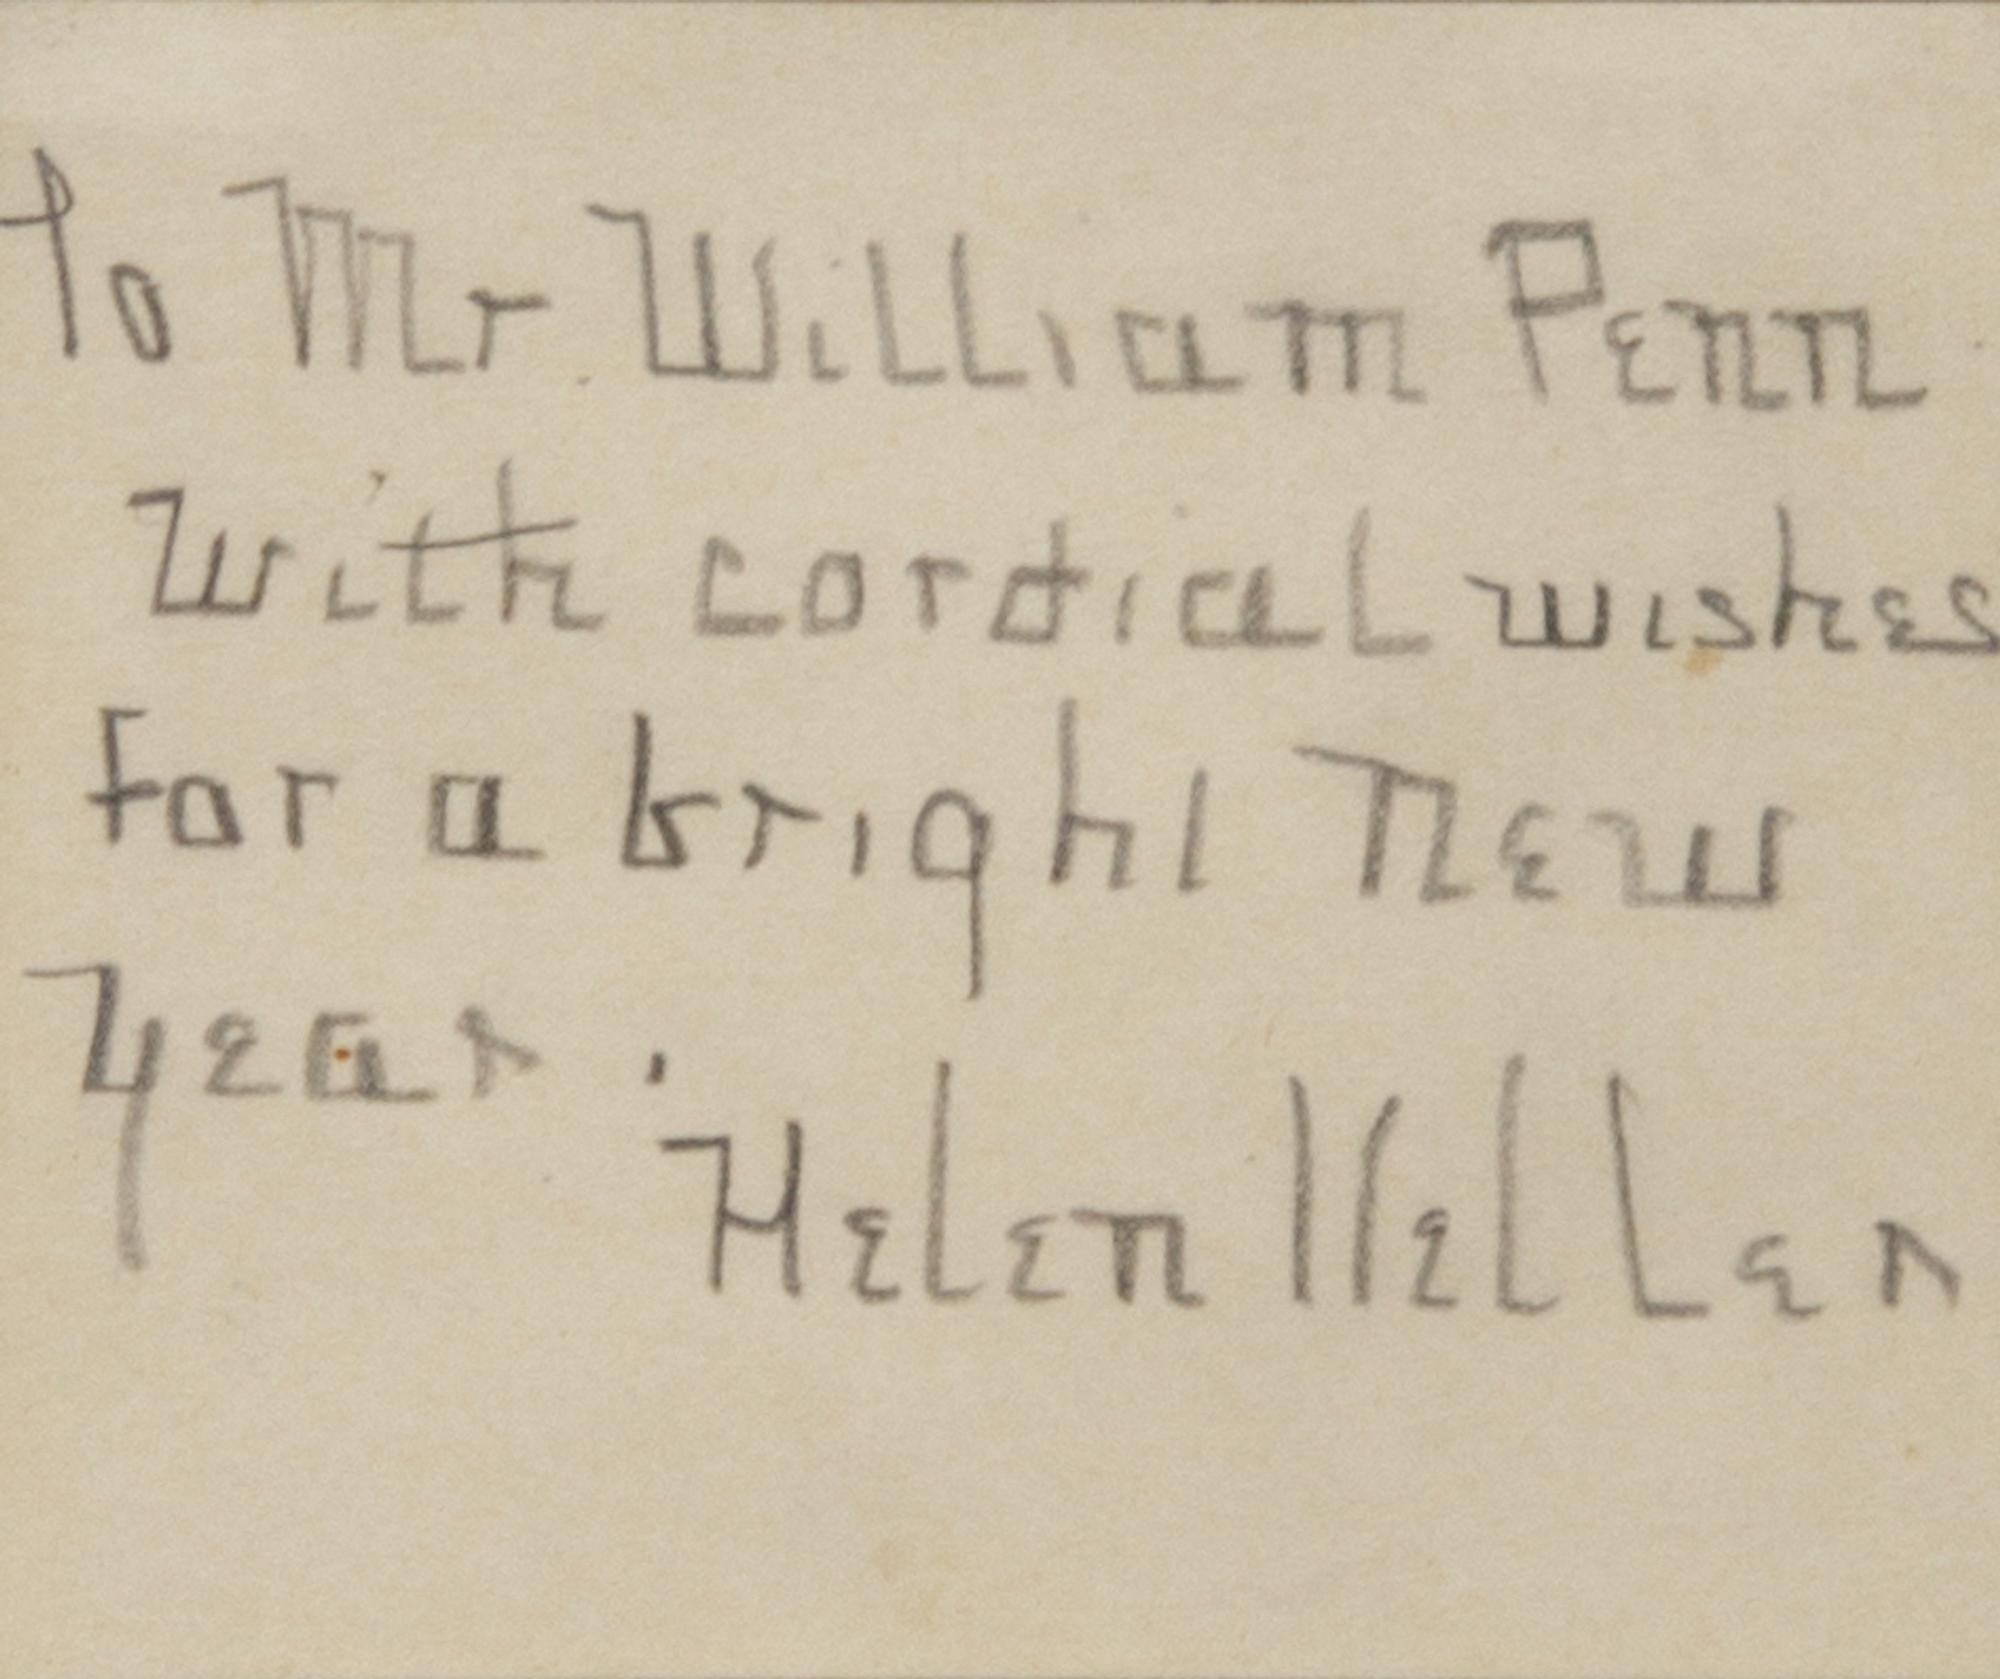 To Mr William Penn
with cordial wishes
for a bright New
Year.
Helen Keller